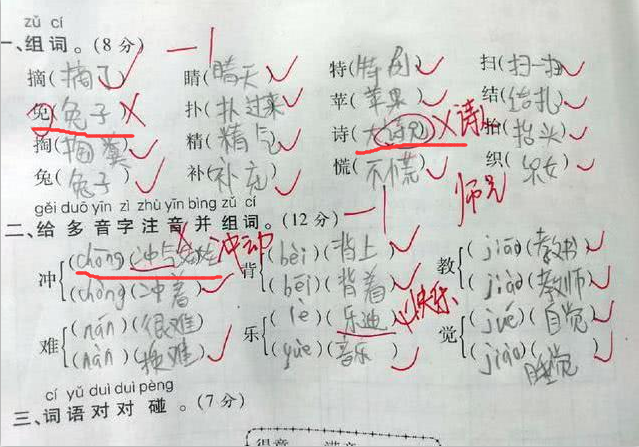 zǔ cí
一、组词。(8分) 一1
摘(摘了) 睛(晴天) 特(特别) 扫(扫一扫)
免(兔子) 扑(扑过来) 苹(苹果) 结(结扎)
掏(掏粪) 精(精气) 诗(大诗兄) 诗 抬(抬头)
兔(兔子) 补(补充) 慌(不慌) 织(织女)
师兄
gěi duō yīn zì zhù yīn bìng zǔ cí
二、给多音字注音并组词。(12分) 一1
冲 (chōng)(冲气) 冲动 背 (bēi)(背上) 教 (jiāo)(教书)
(chòng)(冲着) (bēi)(背着) (jiào)(教师)
难 (nán)(很难) 乐 (lè)(乐迪) 快乐 觉 (jué)(自觉)
(nàn)(难) (yuè)(音乐) (jiào)(睡觉)
cí yǔ duì duì pèng
三、词语对对碰。(7分)
得意 满意